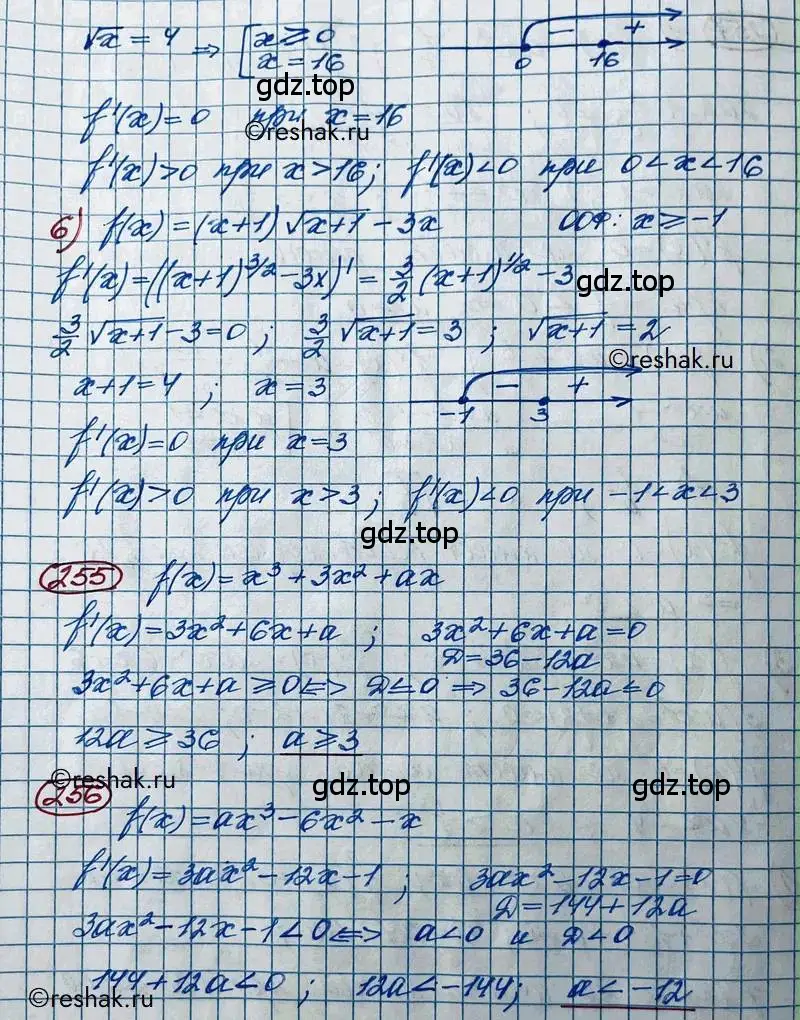 √x = 4 ⇒ [x ≥ 0
x = 16
− +
0 16
gdz.top
f'(x) = 0 при x = 16
©reshak.ru
f'(x) > 0 при x > 16; f'(x) < 0 при 0 < x < 16
6) f(x) = (x+1)√x+1 − 3x ООФ: x ≥ −1
f'(x) = ((x+1)^3/2 − 3x)' = 3/2 (x+1)^1/2 − 3
gdz.top
3/2 √x+1 − 3 = 0; 3/2 √x+1 = 3; √x+1 = 2
©reshak.ru
x+1 = 4; x = 3
− +
−1 3
f'(x) = 0 при x = 3
f'(x) > 0 при x > 3; f'(x) < 0 при −1 < x < 3
gdz.top
255 f(x) = x³ + 3x² + ax
f'(x) = 3x² + 6x + a; 3x² + 6x + a = 0
Д = 36 − 12a
3x² + 6x + a ≥ 0 ⇔ Д ≤ 0 ⇒ 36 − 12a ≤ 0
12a ≥ 36; a ≥ 3
©reshak.ru
gdz.top gdz.top
256 f(x) = ax³ − 6x² − x
f'(x) = 3ax² − 12x − 1; 3ax² − 12x − 1 = 0
Д = 144 + 12a
3ax² − 12x − 1 < 0 ⇔ a < 0 и Д < 0
144 + 12a < 0; 12a < −144; a < −12
©reshak.ru